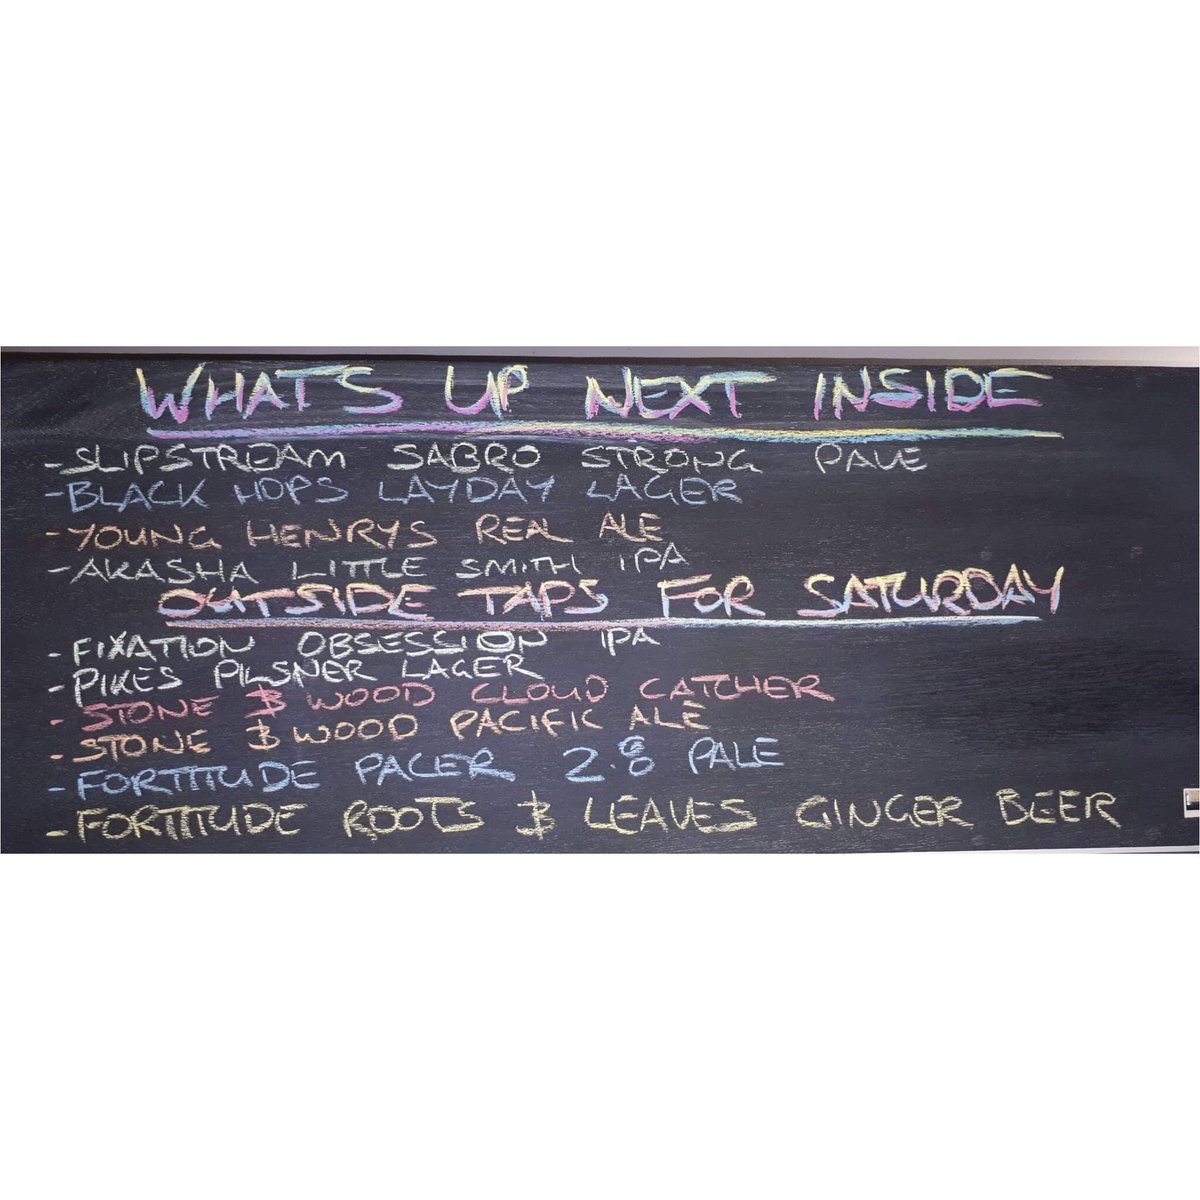 WHAT'S UP NEXT INSIDE
-SLIPSTREAM SABRO STRONG PALE
-BLACK HOPS LAYDAY LAGER
-YOUNG HENRYS REAL ALE
-AKASHA LITTLE SMITH IPA
OUTSIDE TAPS FOR SATURDAY
- FIXATION OBSESSION IPA
- PIKES PILSNER LAGER
- STONE & WOOD CLOUD CATCHER
- STONE & WOOD PACIFIC ALE
- FORTITUDE PACER 2.8 PALE
- FORTITUDE ROOTS & LEAVES GINGER BEER